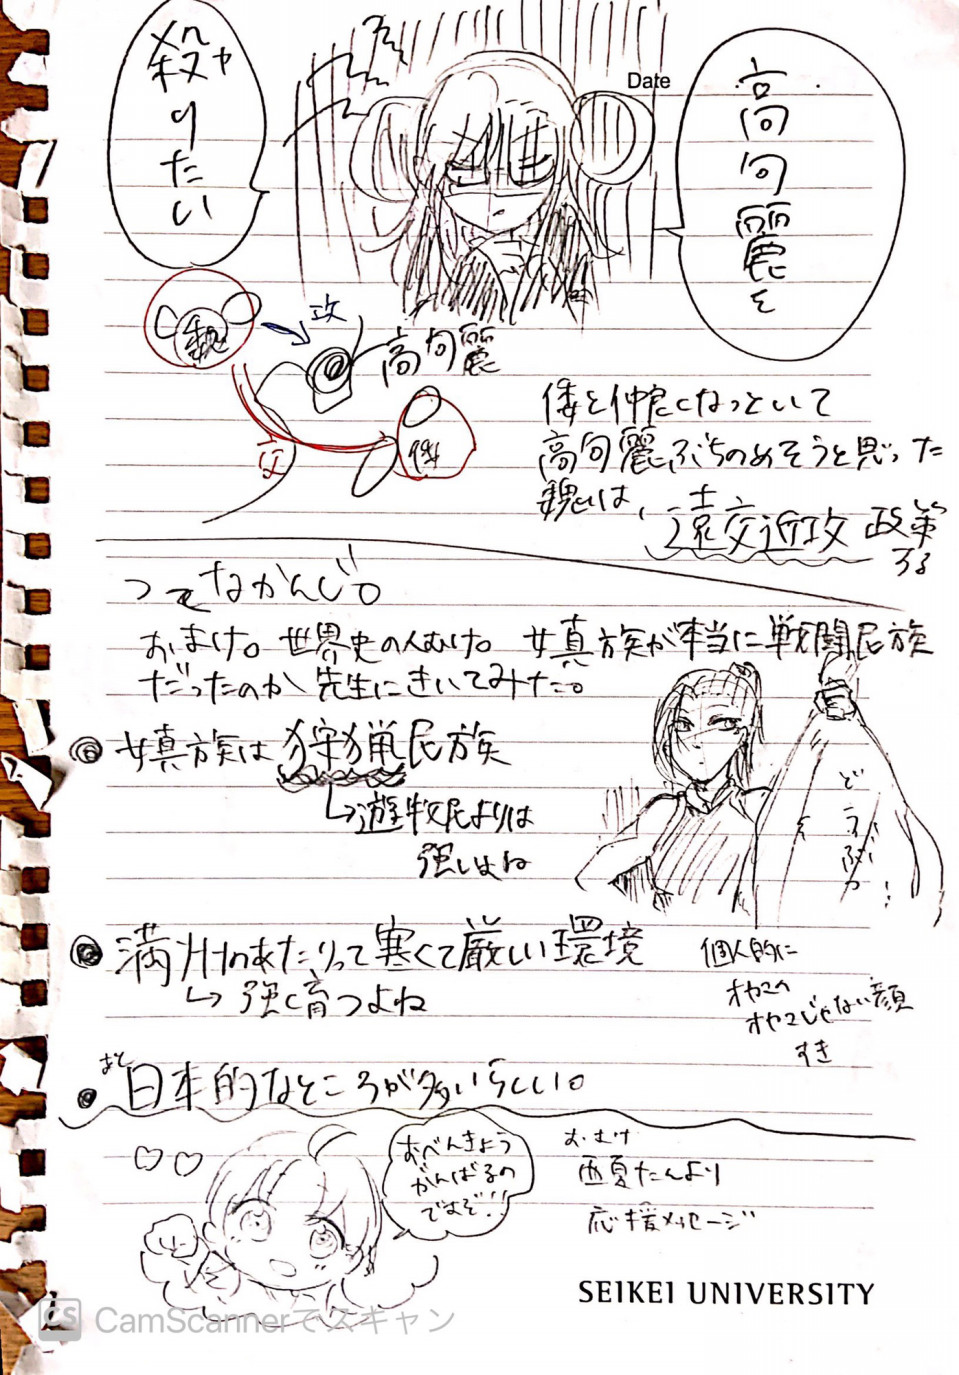 Date
高句麗を
殺りたい
ヤ
魏
攻
高句麗
交
倭
倭と仲良くなっといて
高句麗ぶちのめそうと思った
魏は、遠交近攻政策
する
ってなかんじ。
おまけ。世界史の人むけ。女真族が本当に戦闘民族
だったのか先生にきいてみた。
女真族は狩猟民族
↳遊牧民よりは
強いよね
満州のあたりって寒くて厳しい環境
↳強く育つよね
個人的に
オヤマの
オヤマじゃない顔
すき
あと
日本的なところが多いらしい。
おべんきょう
がんばるの
ですぞ!!
おむけ
西夏たんより
応援メッセージ
SEIKEI UNIVERSITY
CS CamScannerでスキャン